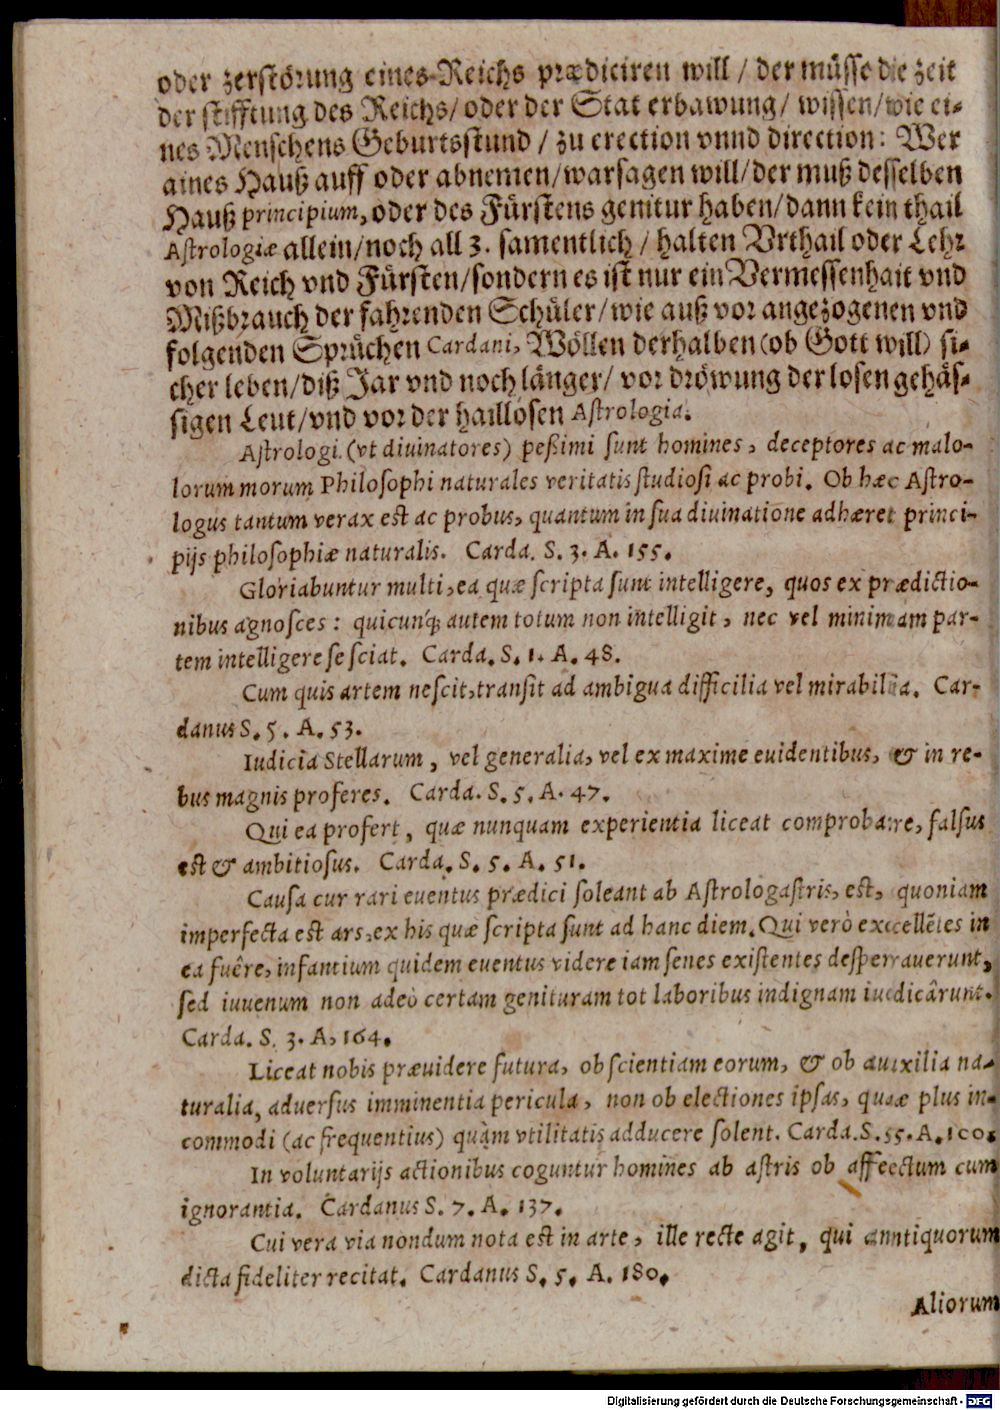 oder zerstörung eines Reichs prædiciren will / der müsse die zeit
der stifftung des Reichs/ oder der Stat erbawung/ wissen/wie ei-
nes Menschens Geburtsstund / zu erection vnnd direction: Wer
aines Hauß auff oder abnemen/warsagen will/der muß desselben
Hauß principium, oder des Fürstens genitur haben/dann kein thail
Astrologiæ allein/noch all 3. samentlich / halten Vrthail oder Lehr
von Reich vnd Fürsten/sondern es ist nur ein Vermessenhait vnd
Mißbrauch der fahrenden Schüler/wie auß vor angezogenen vnd
folgenden Sprüchen Cardani, Wöllen derhalben (ob Gott will) si-
cher leben/diß Jar vnd noch länger/ vor dröwung der losen gehäs-
sigen Leut/vnd vor der haillosen Astrologia.
Astrologi (vt diuinatores) peßimi sunt homines, deceptores ac malo-
lorum morum Philosophi naturales veritatis studiosi ac probi. Ob hæc Astro-
logus tantum verax est ac probus, quantum in sua diuinatione adhæret princi-
pijs philosophiæ naturalis. Carda. S. 3. A. 155.
Gloriabuntur multi, ea quæ scripta sunt intelligere, quos ex prædictio-
nibus agnosces: quicunq́; autem totum non intelligit, nec vel minimam par-
tem intelligere se sciat. Carda. S. 1. A. 48.
Cum quis artem nescit, transit ad ambigua difficilia vel mirabilia. Car-
danus S. 5. A. 53.
Iudicia Stellarum, vel generalia, vel ex maxime euidentibus, & in re-
bus magnis proferes. Carda. S. 5. A. 47.
Qui ea profert, quæ nunquam experientia liceat comprobare, falsus
est & ambitiosus. Carda. S. 5. A. 51.
Causa cur rari euentus prædici soleant ab Astrologastris, est, quoniam
imperfecta est ars, ex his quæ scripta sunt ad hanc diem. Qui verò excellẽtes in
ea fuêre, infantium quidem euentus videre iam senes existentes desperauerunt,
sed iuuenum non adeò certam genituram tot laboribus indignam iudicârunt.
Carda. S. 3. A, 164.
Liceat nobis præuidere futura, ob scientiam eorum, & ob auxilia na-
turalia, aduersus imminentia pericula, non ob electiones ipsas, quæ plus in-
commodi (ac frequentius) quàm vtilitatis adducere solent. Carda. S. 55. A. 100.
In voluntarijs actionibus coguntur homines ab astris ob affectum cum
ignorantia. Cardanus S. 7. A. 137.
Cui vera via nondum nota est in arte, ille recte agit, qui antiquorum
dicta fideliter recitat. Cardanus S. 5. A. 180.
Aliorum
Digitalisierung gefördert durch die Deutsche Forschungsgemeinschaft - DFG